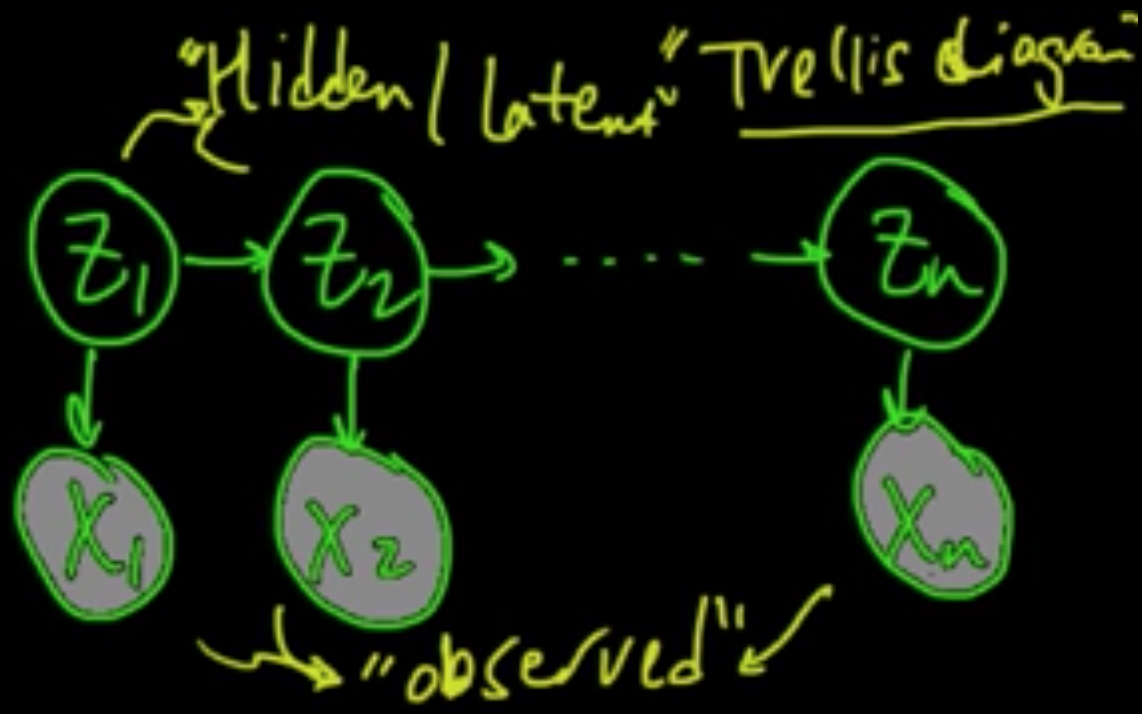 "Hidden / latent" "Trellis diagram"
Z1 Z2 ..... Zn
X1 X2 Xn
"observed"